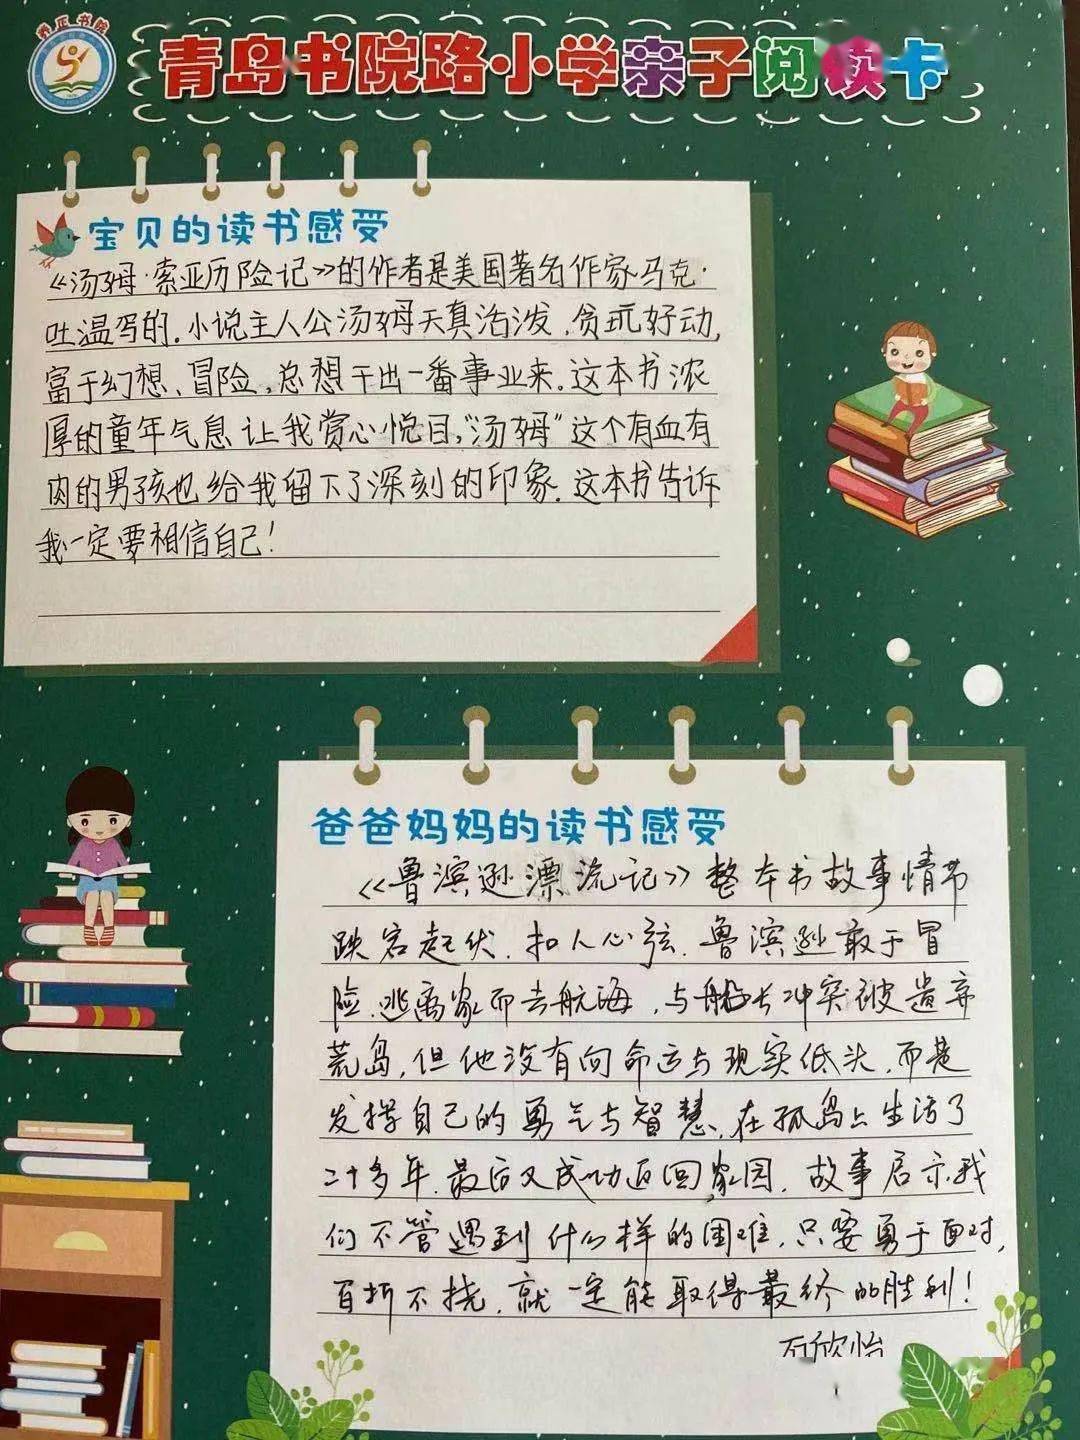 养正书院
青岛书院路小学亲子阅读卡
宝贝的读书感受
《汤姆·索亚历险记》的作者是美国著名作家马克·
吐温写的.小说主人公汤姆天真活泼.贪玩好动,
富于幻想、冒险,总想干出一番事业来.这本书浓
厚的童年气息让我赏心悦目,"汤姆"这个有血有
肉的男孩也给我留下了深刻的印象.这本书告诉
我一定要相信自己!
爸爸妈妈的读书感受
《鲁滨逊漂流记》整本书故事情节
跌宕起伏.扣人心弦.鲁滨逊敢于冒
险.逃离家而去航海,与船长冲突被遗弃
荒岛,但他没有向命运与现实低头.而是
发挥自己的勇气与智慧,在孤岛上生活了
二十多年.最后又成功返回家园.故事启示我
们不管遇到什么样的困难.只要勇于面对,
百折不挠.就一定能取得最终的胜利!
石欣怡